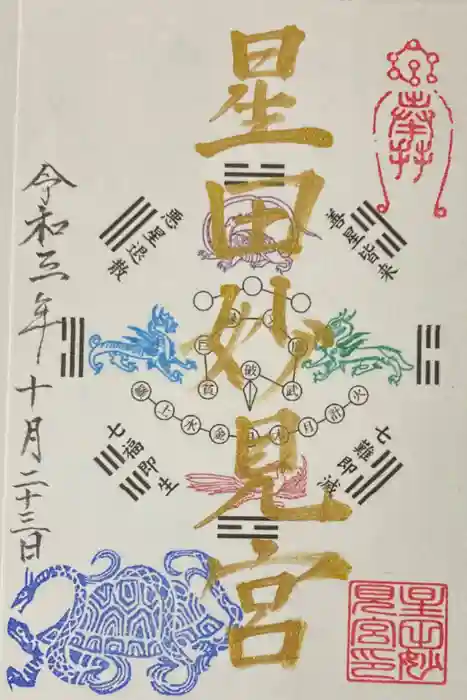 星田妙見宮
令和三年 十月二十三日
善星皆来
悪星退散
七難即滅
七福即生
巨
貪
破
武
土
水
木
月
計
火
星田妙
見宮印